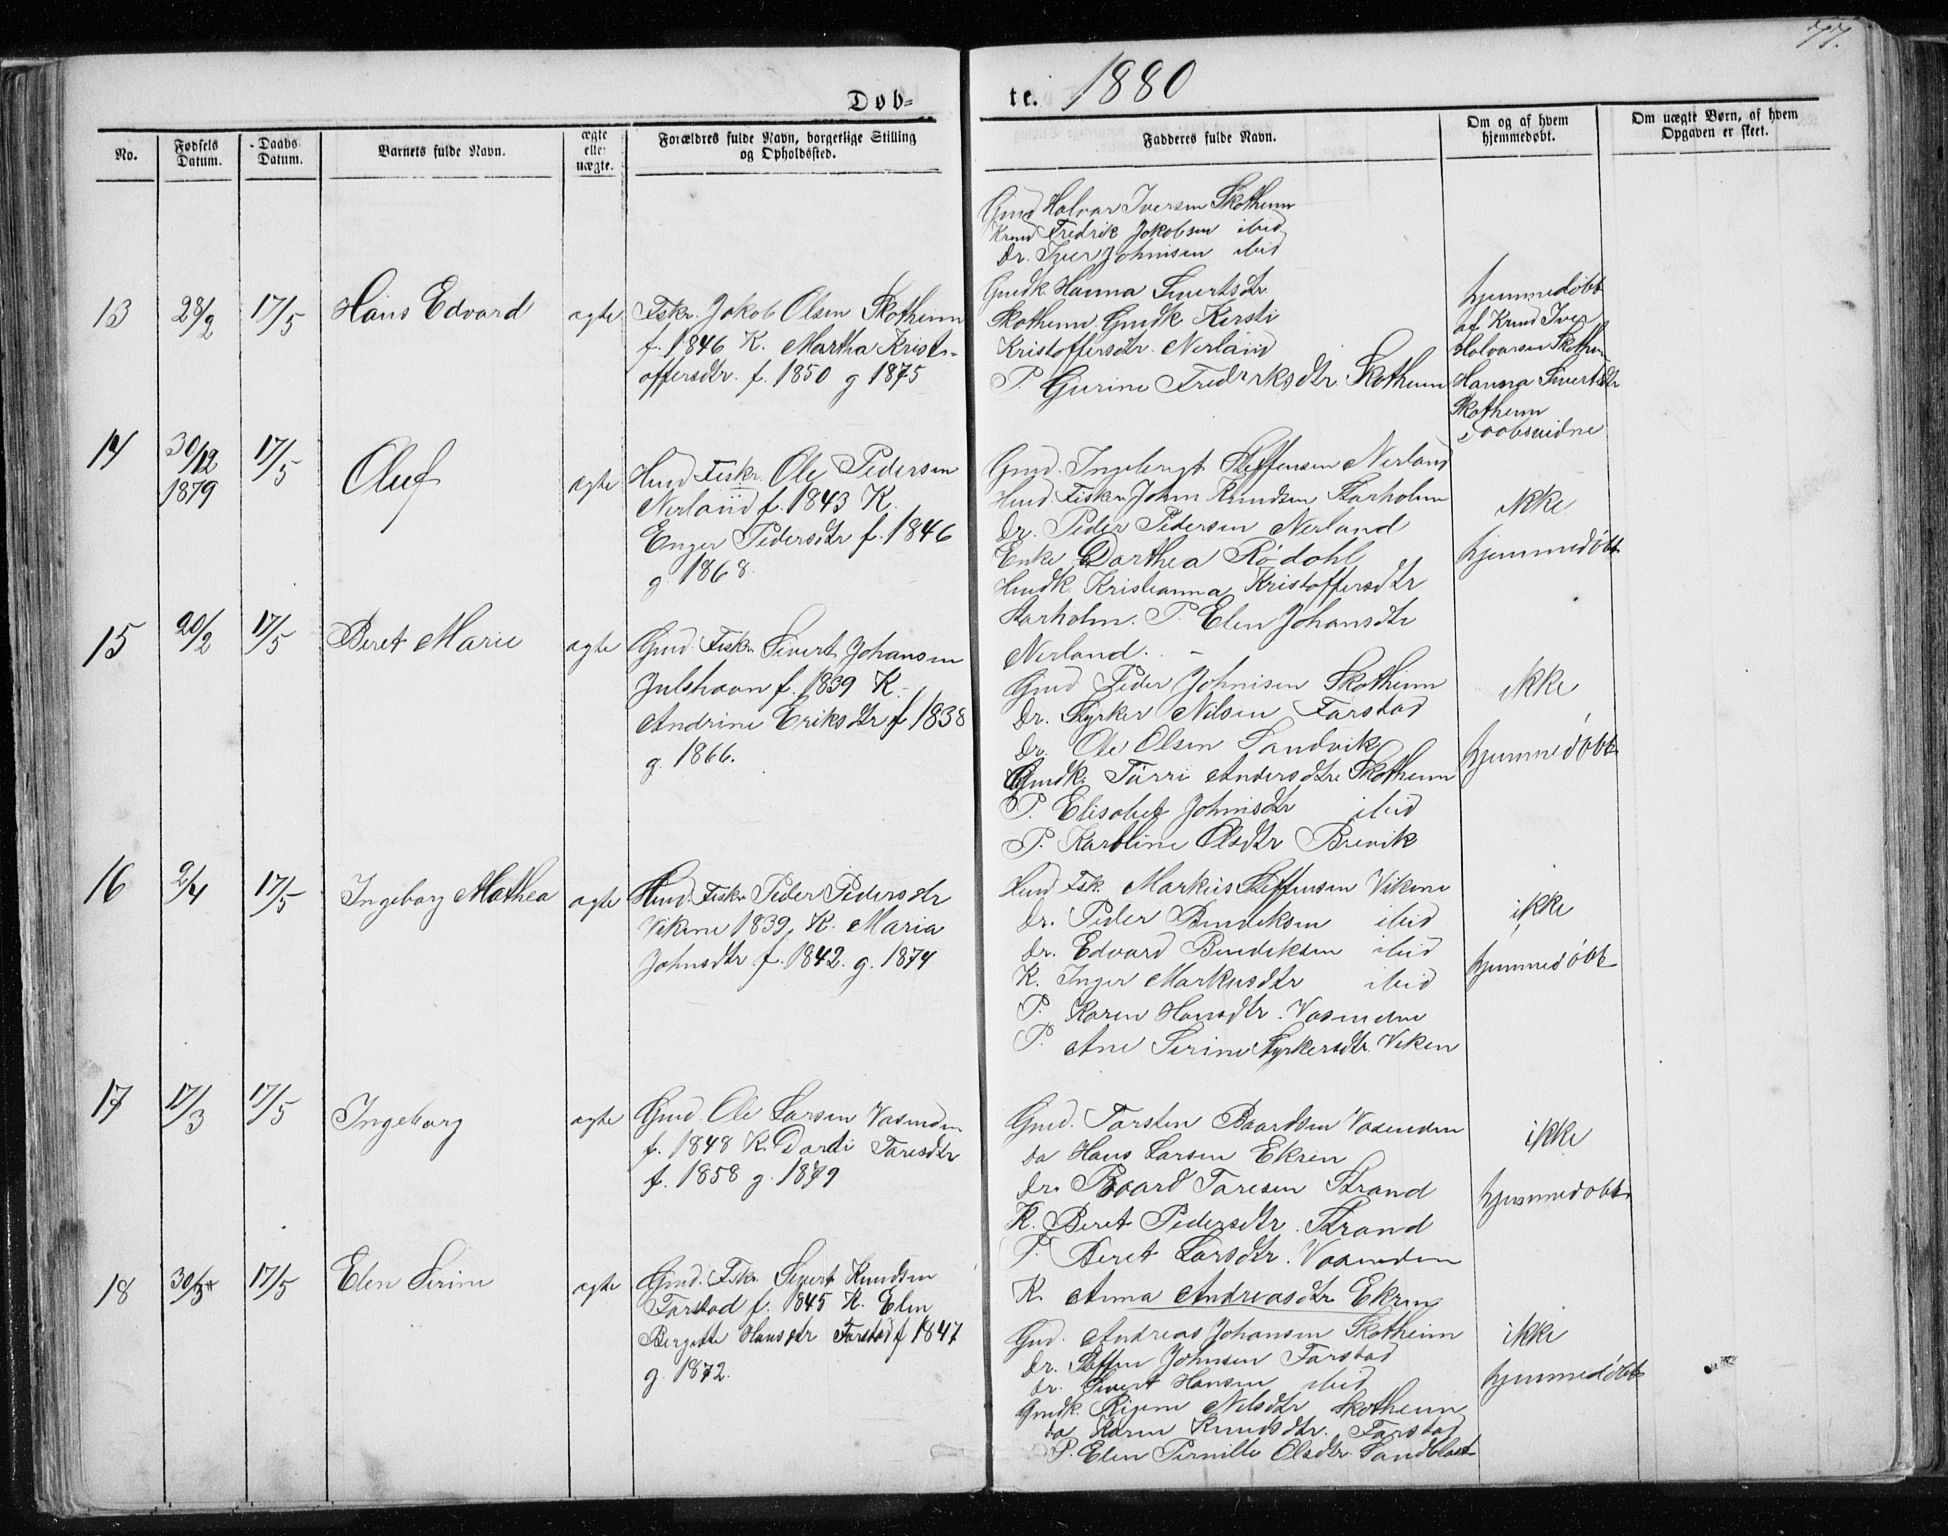 77.
Døb-
te. 1880
No.
Fødsels Datum.
Daabs Datum.
Barnets fulde Navn.
ægte eller uægte.
Forældres fulde Navn, borgerlige Stilling
og Opholdssted.
Fadderes fulde Navn.
Om og af hvem
hjemmedøbt.
Om uægte Børn, af hvem
Opgaven er skeet.
13
28/2
17/5
Hans Edvard
ægte
Fskr. Jakob Olsen Skotheim
f. 1846 K. Martha Krist-
offersdtr. f. 1850 g 1875
Gmd Halvar Iversen Skotheim
Fredrik Jakobsen ibid
Dr. Iver Johnisen ibid
Gmdk. Hanna Sivertsdtr
Skotheim. Gmdk Kersti
Kristoffersdtr. Nerland
P. Gurine Fredriksdtr Skotheim
hjemmedøbt
af Iver
Halvarsen Skotheim
Hanna Sivertsdtr
Skotheim
Daabsvidne
14
30/12
1879
17/5
Oluf
ægte
Hmd Fiskr. Ole Pedersen
Nerland f. 1843 K.
Enger Pedersdtr f. 1846
g. 1868
Gmd. Ingebrigt Steffensen Nerland
Hmd. Fiskr John Knudsen Harholm
Dr. Peder Pedersen Nerland
Enke Dorthea Rødahl
Hmdk. Kristianna Kristoffersdtr
Harholm. P. Elen Johansdtr
Nerland.
ikke
hjemmedøbt
15
20/2
17/5
Beret Marie
ægte
Gmd. Fiskr Sivert Johansen
Julshavn f. 1839 K.
Andrine Eriksdtr f 1838
g. 1866.
Gmd Peder Johnisen Skotheim
Dr. Styrker Nilsen Farstad
Dr. Ole Olsen Sandvik
Gmdk. Tørri Andersdtr Skotheim
P. Elisabet Johnisdtr ibid
P. Karoline Olsdtr Brevik
ikke
hjemmedøbt
16
2/4
17/5
Ingeborg Mathea
ægte
Hmd. Fiskr Peder Pedersdtr
Vikene 1839, K. Maria
Johnsdtr f. 1842. g. 1874
Hmd Fsk. Markus Steffensen Vikene
Dr. Peder Bendiksen ibid
Dr. Edvard Bendiksen ibid
K. Inger Markusdtr ibid
P. Karen Hansdtr. Vasenden
P. Ane Serine Styrkersdtr. Viken
ikke
hjemmedøbt
17
17/3
17/5
Ingeborg
ægte
Gmd. Ole Larsen Vasenden
f. 1848 K. Dordi Taresdtr
f. 1858 g. 1879
Gmd. Tarsten Baardsen Vasenden
Do Hans Larsen Ekren
Dr. Baard Taresen Strand
K. Beret Pedersdtr. Strand
P. Beret Larsdtr. Vasenden
K. Anna Andreasdtr Ekren
ikke
hjemmedøbt
18
30/3
17/5
Elen Serine
ægte
Gmd. Fskr. Sivert Knudsen
Farstad f. 1845 K. Elen
Bergitte Hansdtr Farstad f 1847
g. 1872.
Gmd. Andreas Johansen Skotheim
Dr. Steffen Johnsen Farstad
Dr. Sivert Hansen ibid
Gmdk. Nilsdtr Skotheim
Do Karen Knudsdtr. Farstad
P. Elen Pernille Olsdtr Sandblaast
ikke
hjemmedøbt